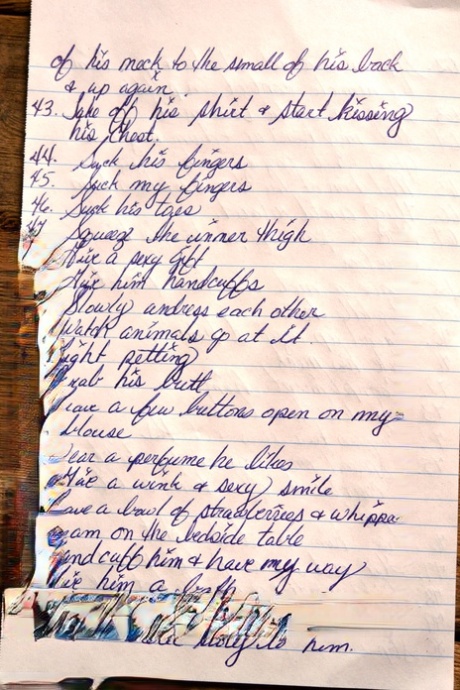 of his neck to the small of his back
& up again.
43. Take off his shirt & start kissing
his chest.
44. Suck his fingers
45. Suck my fingers
46. Suck his toes
47. Squeeze the inner thigh
Give a sexy gift
Give him handcuffs
Slowly undress each other
Watch animals go at it.
light petting
Grab his butt
Leave a few buttons open on my
blouse
ear a perfume he likes
Give a wink & sexy smile
ave a bowl of strawberries & whipp
eam on the bedside table
andcuff him & have my way
Give him a bath
story to him.